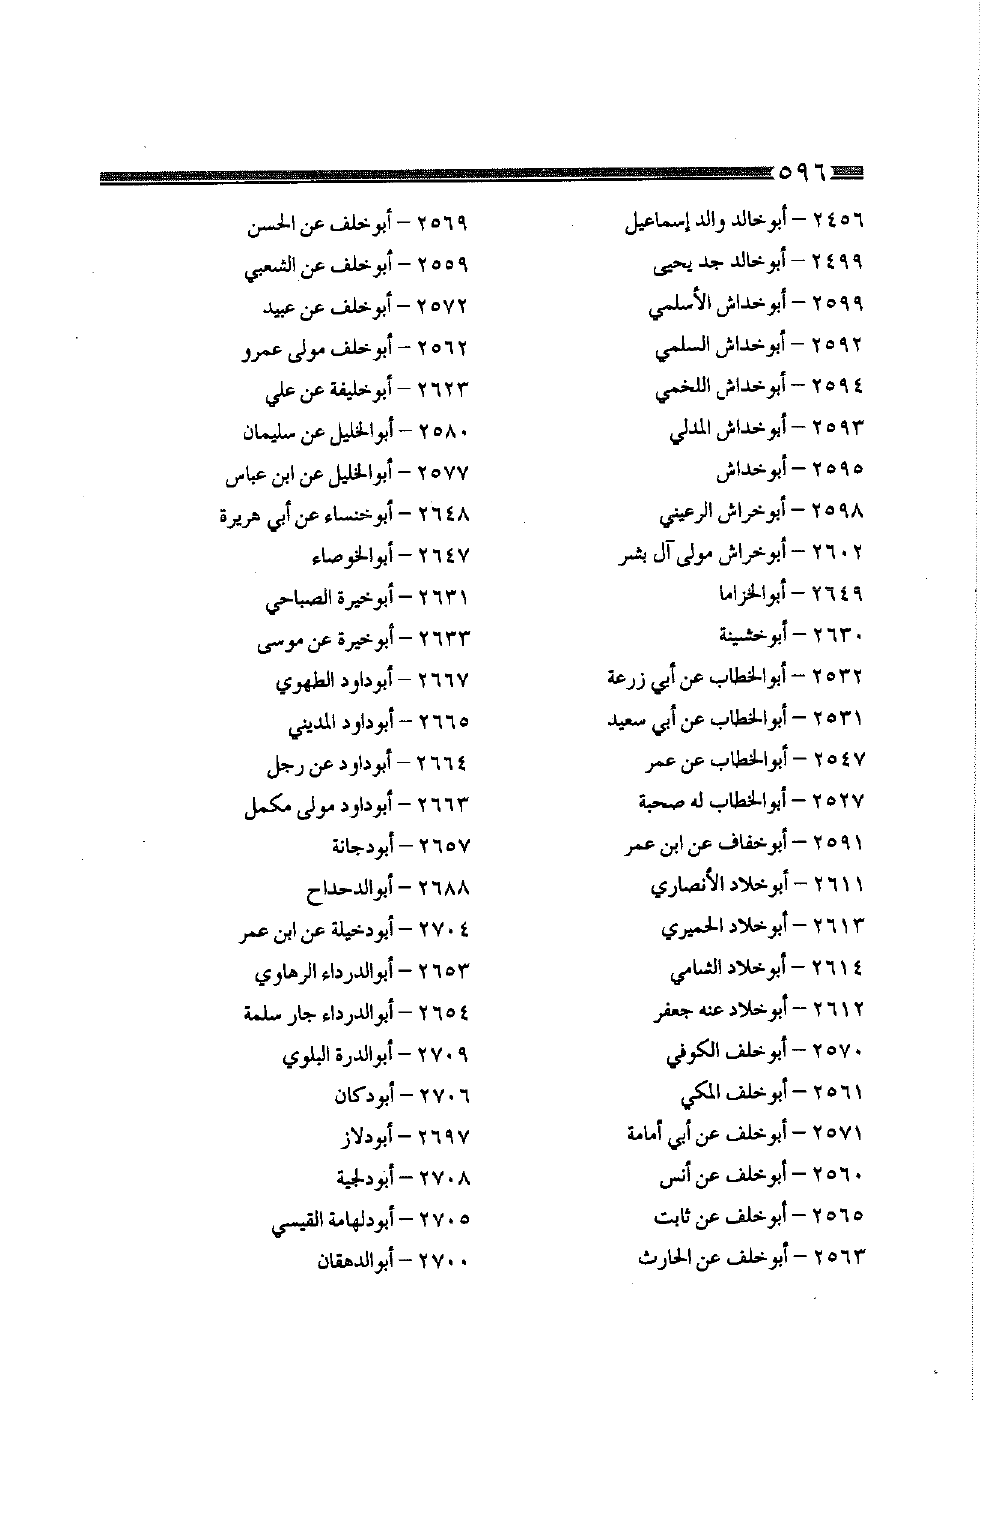 ٥٩٦
٢٤٥٦ – أبو خالد والد إسماعيل
٢٤٩٩ – أبو خالد جد يحيى
٢٥٩٩ – أبو خداش الأسلمي
٢٥٩٢ – أبو خداش السلمي
٢٥٩٤ – أبو خداش اللخمي
٢٥٩٣ – أبو خداش المدلي
٢٥٩٥ – أبو خداش
٢٥٩٨ – أبو خراش الرعيني
٢٦٠٢ – أبو خراش مولى آل بشر
٢٦٤٩ – أبو الخزاما
٢٦٣٠ – أبو خشينة
٢٥٣٢ – أبو الخطاب عن أبي زرعة
٢٥٣١ – أبو الخطاب عن أبي سعيد
٢٥٤٧ – أبو الخطاب عن عمر
٢٥٢٧ – أبو الخطاب له صحبة
٢٥٩١ – أبو خفاف عن ابن عمر
٢٦١١ – أبو خلاد الأنصاري
٢٦١٣ – أبو خلاد الحميري
٢٦١٤ – أبو خلاد الشامي
٢٦١٢ – أبو خلاد عنه جعفر
٢٥٧٠ – أبو خلف الكوفي
٢٥٦١ – أبو خلف المكي
٢٥٧١ – أبو خلف عن أبي أمامة
٢٥٦٠ – أبو خلف عن أنس
٢٥٦٥ – أبو خلف عن ثابت
٢٥٦٣ – أبو خلف عن الحارث
٢٥٦٩ – أبو خلف عن الحسن
٢٥٥٩ – أبو خلف عن الشعبي
٢٥٧٢ – أبو خلف عن عبيد
٢٥٦٢ – أبو خلف مولى عمرو
٢٦٢٣ – أبو خليفة عن علي
٢٥٨٠ – أبو الخليل عن سليمان
٢٥٧٧ – أبو الخليل عن ابن عباس
٢٦٤٨ – أبو خنساء عن أبي هريرة
٢٦٤٧ – أبو الخوصاء
٢٦٣١ – أبو خيرة الصباحي
٢٦٣٣ – أبو خيرة عن موسى
٢٦٦٧ – أبو داود الطهوي
٢٦٦٥ – أبو داود المديني
٢٦٦٤ – أبو داود عن رجل
٢٦٦٣ – أبو داود مولى مكمل
٢٦٥٧ – أبو دجانة
٢٦٨٨ – أبو الدحداح
٢٧٠٤ – أبو دخيلة عن ابن عمر
٢٦٥٣ – أبو الدرداء الرهاوي
٢٦٥٤ – أبو الدرداء جار سلمة
٢٧٠٩ – أبو الدرة البلوي
٢٧٠٦ – أبو دكان
٢٦٩٧ – أبو دلاز
٢٧٠٨ – أبو دلجية
٢٧٠٥ – أبو دلهامة القيسي
٢٧٠٠ – أبو الدهقان